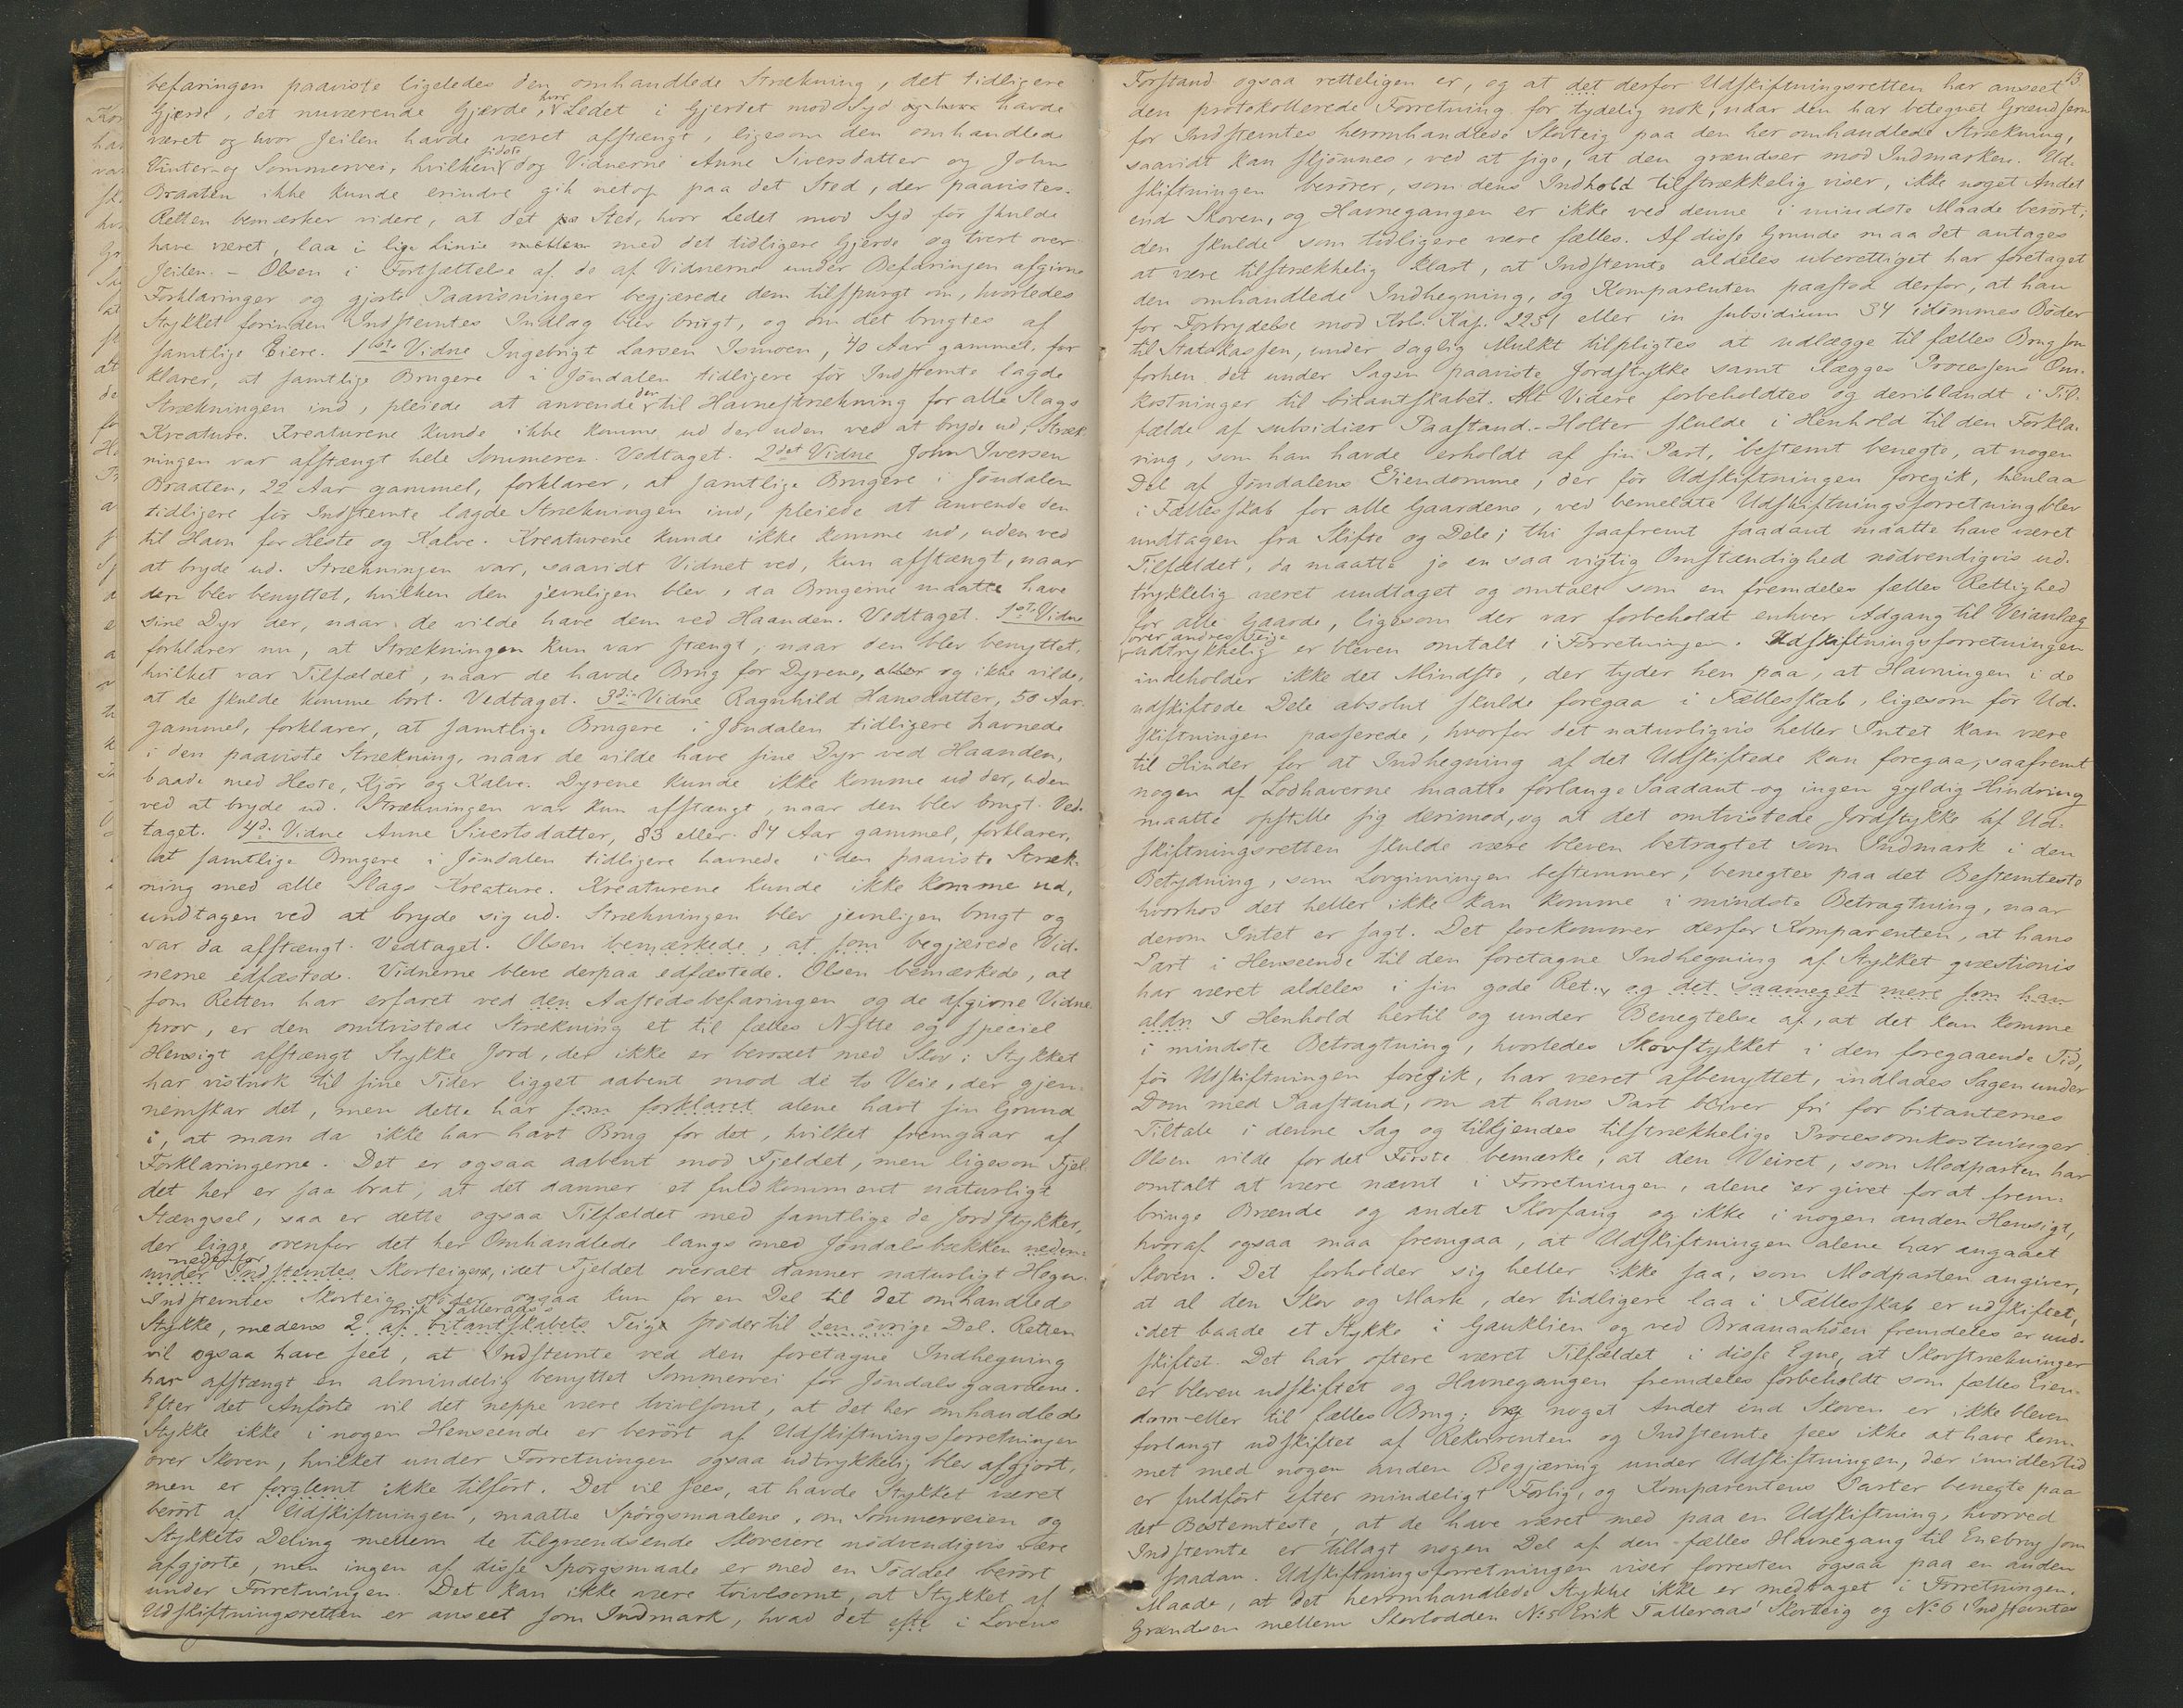 befaringen paaviste ligeledes den omhandlede Strækning, det tidligere
Gjerde, det nuværende Gjærde, hvor Ledet i Gjerdet mod Syd og hvor havde
været og hvor Jeilen havde været afstængt, ligesom den omhandlede
Vinter- og Sommervei, hvilken sidste dog Vidnerne Anne Siversdatter og John
Braaten ikke kunde erindre gik netop paa det Sted, der paavistes.
Retten bemærker videre, at det Sted, hvor Ledet mod Syd før skulde
have været, laa i lige Linie mellem med det tidligere Gjerde og tvert over
Jeilen. - Olsen i Fortsættelse af de af Vidnerne under Befaringen afgivne
Forklaringer og gjorte Paavisninger begjærede dem tilspurgt om, hvorledes
Stykket forinden Indstemtes Indlæg blev brugt, og om det brugtes af
samtlige Eiere. 1ste Vidne Ingebrigt Larsen Ismoen, 40 Aar gammel, for
klarer, at samtlige Brugere i Jøndalen tidligere før Indstemte lagde
Strækningen ind, pleiede at anvende den til Havnestrækning for alle Slags
Kreature. Kreaturene kunde ikke komme ud der uden ved at bryde ud, Stræk
ningen var afstængt hele Sommeren. Vedtaget. 2det Vidne John Iversen
Braaten, 22 Aar gammel, forklarer, at samtlige Brugere i Jøndalen
tidligere før Indstemte lagde Strækningen ind, pleiede at anvende den
til Havn for Heste og Kalve. Kreaturene kunde ikke komme ud, uden ved
at bryde ud. Strækningen var, saavidt Vidnet ved, kun afstængt, naar
den blev benyttet, hvilken den jevnligen blev, da Brugerne maatte have
sine Dyr der, naar de vilde have dem ved Haanden. Vedtaget. 1ste Vidne
forklarer nu, at Strækningen kun var stængt, naar den blev benyttet,
hvilket var Tilfældet, naar de havde Brug for Dyrene, eller og ikke vilde,
at de skulde komme bort. Vedtaget. 3die Vidne Ragnhild Hansdatter, 50 Aar
gammel, forklarer, at samtlige Brugere i Jøndalen tidligere havnede
i den paaviste Strækning, naar de vilde have sine Dyr ved Haanden,
baade med Heste, Kjør og Kalve. Dyrene kunde ikke komme ud der, uden
ved at bryde ud. Strækningen var kun afstængt, naar den blev brugt. Ved-
taget. 4de Vidne Anne Sivertsdatter, 83 eller 84 Aar gammel, forklarer,
at samtlige Brugere i Jøndalen tidligere havnede i den paaviste Stræk-
ning med alle Slags Kreature. Kreaturene kunde ikke komme ud,
undtagen ved at bryde sig ud. Strækningen blev jevnligen brugt og
var da afstængt. Vedtaget. Olsen bemærkede, at som begjærede Vid-
nerne edfæstede. Vidnerne bleve derpaa edfæstede. Olsen bemærkede, at
som Retten har erfaret ved den Aastedsbefaringen og de afgivne Vidne
prov, er den omtvistede Strækning et til fælles Nytte og speciel
Hensigt afstængt Stykke Jord, der ikke er bevoxet med Skov; Stykket
har vistnok til sine Tider ligget aabent mod de to Veie, der gjen-
nemskar det, men dette har som forklaret alene havt sin Grund
i, at man da ikke har havt Brug for det, hvilket fremgaar af
Forklaringerne. Det er ogsaa aabent mod Fjeldet, men ligesom Fjel
det her er saa brat, at det danner et fuldkomment naturligt
Stængsel, saa er dette ogsaa Tilfældet med samtlige de Jordstykker,
der ligge ovenfor det her Omhandlede langs med Jøndalsbækken neden-
under nedenfor Indstemtes Skovteig, idet Fjeldet overalt danner naturligt Hegn.
Indstemtes Skovteig støder ogsaa kun for en Del til det omhandlede
Stykke, medens 2 af Citantskabets Erik Talleraas's Teig støder til den øvrige Del. Retten
vil ogsaa have seet, at Indstemte ved den foretagne Indhegning
har afstængt en almindelig benyttet Sommervei for Jøndalsgaardene.
Efter det Anførte vil det neppe være tvivlsomt, at det her omhandlede
Stykke ikke i nogen Henseende er berørt af Udskiftningsforretningen
over Skoven, hvilket under Forretningen ogsaa udtrykkelig blev afgjort,
men er forglemt ikke tilført. Det vil sees, at havde Stykket været
berørt af Udskiftningen, maatte Spørgsmaalene, om Sommerveien og
Stykkets Deling mellem de tilgrændsende Skoveiere nødvendigvis være
afgjorte, men ingen af disse Spørgsmaale er med en Tøddel berørt
under Forretningen. Det kan ikke være tvivlsomt, at Stykket af
Udskiftningsretten er anseet som Indmark, hvad det efte i Lovens
13
Forstand ogsaa retteligen er, og at det derfor Udskiftningsretten har anseet
den protokollerede Forretning for tydelig nok, naar den har betegnet Grændsern
for Indstemtes heromhandlede Skovteig paa den her omhandlede Strækning,
saavidt kan skjønnes, ved at sige, at den grændser mod Indmarken. Ud-
skiftningen berører, som dens Indhold tilstrækkelig viser, ikke noget Andet
end Skoven, og Havnegangen er ikke ved denne i mindste Maade berørt;
den skulde som tidligere være fælles. Af disse Grunde maa det antages
at være tilstrækkelig klart, at Indstemte aldeles uberettiget har foretaget
den omhandlede Indhegning, og Komparenten paastod derfor, at han
for Forbrydelse mod Krls. Kap. 22 § 1 eller in subsidium 34 idømmes Bøder
til Statskassen, under daglig Mulkt tilpligtes at udlægge til fælles Brug som
forhen det under Sagen paaviste Jordstykke samt lægges Processens Om-
kostninger til Citantskabet. Alt Videre forbeholdtes og deriblandt i Til-
fælde af subsidiær Paastand. - Holter skulde i Henhold til den Forkla-
ring, som han havde erholdt af sin Part, bestemt benegte, at nogen
Del af Jøndalens Eiendomme, der før Udskiftningen foregik, henlaa
i Fællesskab for alle Gaardene, ved bemeldte Udskiftningsforretning blev
undtagen fra Skifte og Dele; thi saafremt saadant maatte have været
Tilfældet, da maatte jo en saa vigtig Omstændighed nødvendigvis ud-
trykkelig været undtaget og omtalt som en fremdeles fælles Rettighed
for alle Gaarde, ligesom der var forbeholdt enhver Adgang til Veianlæg
over andres Teige udtrykkelig er bleven omtalt i Forretningen. Udskiftningsforretningen
indeholder ikke det Mindste, der tyder hen paa, at Havningen i de
udskiftede Dele absolut skulde foregaa i Fællesskab, ligesom før Ud-
skiftningen passerede, hvorfor det naturligvis heller Intet kan være
til Hinder for at Indhegning af det Udskiftede kan foregaa, saafremt
nogen af Lodhaverne maatte forlange Saadant og ingen gyldig Hindring
maatte opstille sig derimod, og at det omtvistede Jordstykke af Ud-
skiftningsretten skulde være bleven betragtet som Indmark i den
Betydning, som Lovgivningen bestemmer, benegtes paa det Bestemteste
hvorhos det heller ikke kan komme i mindste Betragtning, naar
derom Intet er sagt. Det forekommer derfor Komparenten, at hans
Part i Henseende til den foretagne Indhegning af Stykket qvæstionis
har været aldeles i sin gode Ret, og det saameget mere som han
aldr. I Henhold hertil og under Benegtelse af, at det kan komme
i mindste Betragtning, hvorledes Skovstykket i den foregaaende Tid,
før Udskiftningen foregik, har været afbenyttet, indlades Sagen under
Dom med Paastand, om at hans Part bliver fri for Citanternes
Tiltale i denne Sag og tilkjendes tilstrækkelige Procesomkostninger
Olsen vilde for det Første bemærke, at den Veiret, som Modparten har
omtalt at være nævnt i Forretningen, alene er givet for at frem-
bringe Brænde og andet Skovfang og ikke i nogen anden Hensigt,
hvoraf ogsaa maa fremgaa, at Udskiftningen alene har angaaet
Skoven. Det forholder sig heller ikke saa, som Modparten angiver,
at al den Skov og Mark, der tidligere laa i Fællesskab er udskiftet,
idet baade et Stykke i Gauklien og ved Braanaahøen fremdeles er uud-
skiftet. Det har oftere været Tilfældet i disse Egne, at Skovstrækninger
er bleven udskiftet og Havnegangen fremdeles forbeholdt som fælles Eien-
dom eller til fælles Brug; og noget Andet end Skoven er ikke bleven
forlangt udskiftet af Rekvirenten og Indstemte sees ikke at have kom-
met med nogen anden Begjæring under Udskiftningen, der imidlertid
er fuldført efter mindeligt Forlig, og Komparentens Parter benegte paa
det Bestemteste, at de have været med paa en Udskiftning, hvorved
Indstemte er tillagt nogen Del af den fælles Havnegang til Enebrug som
saadan. Udskiftningsforretningen viser forresten ogsaa paa en anden
Maade, at det heromhandlede Stykke ikke er medtaget i Forretningen.
Grændsen mellem Skovlodden No 5 Erik Talleraas' Skovteig og No 6 Indstemtes